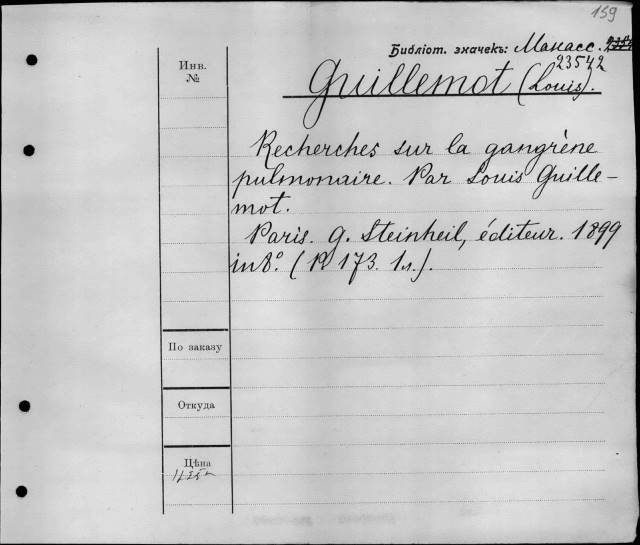 159
Библіот. значекъ: Манасс.
23542
Инв.
№
Guillemot (Louis).
Recherches sur la gangrène
pulmonaire. Par Louis Guille-
mot.
Paris. G. Steinheil, éditeur. 1899
in 8°. (P. 173. 1 л.).
По заказу
Откуда
Цѣна